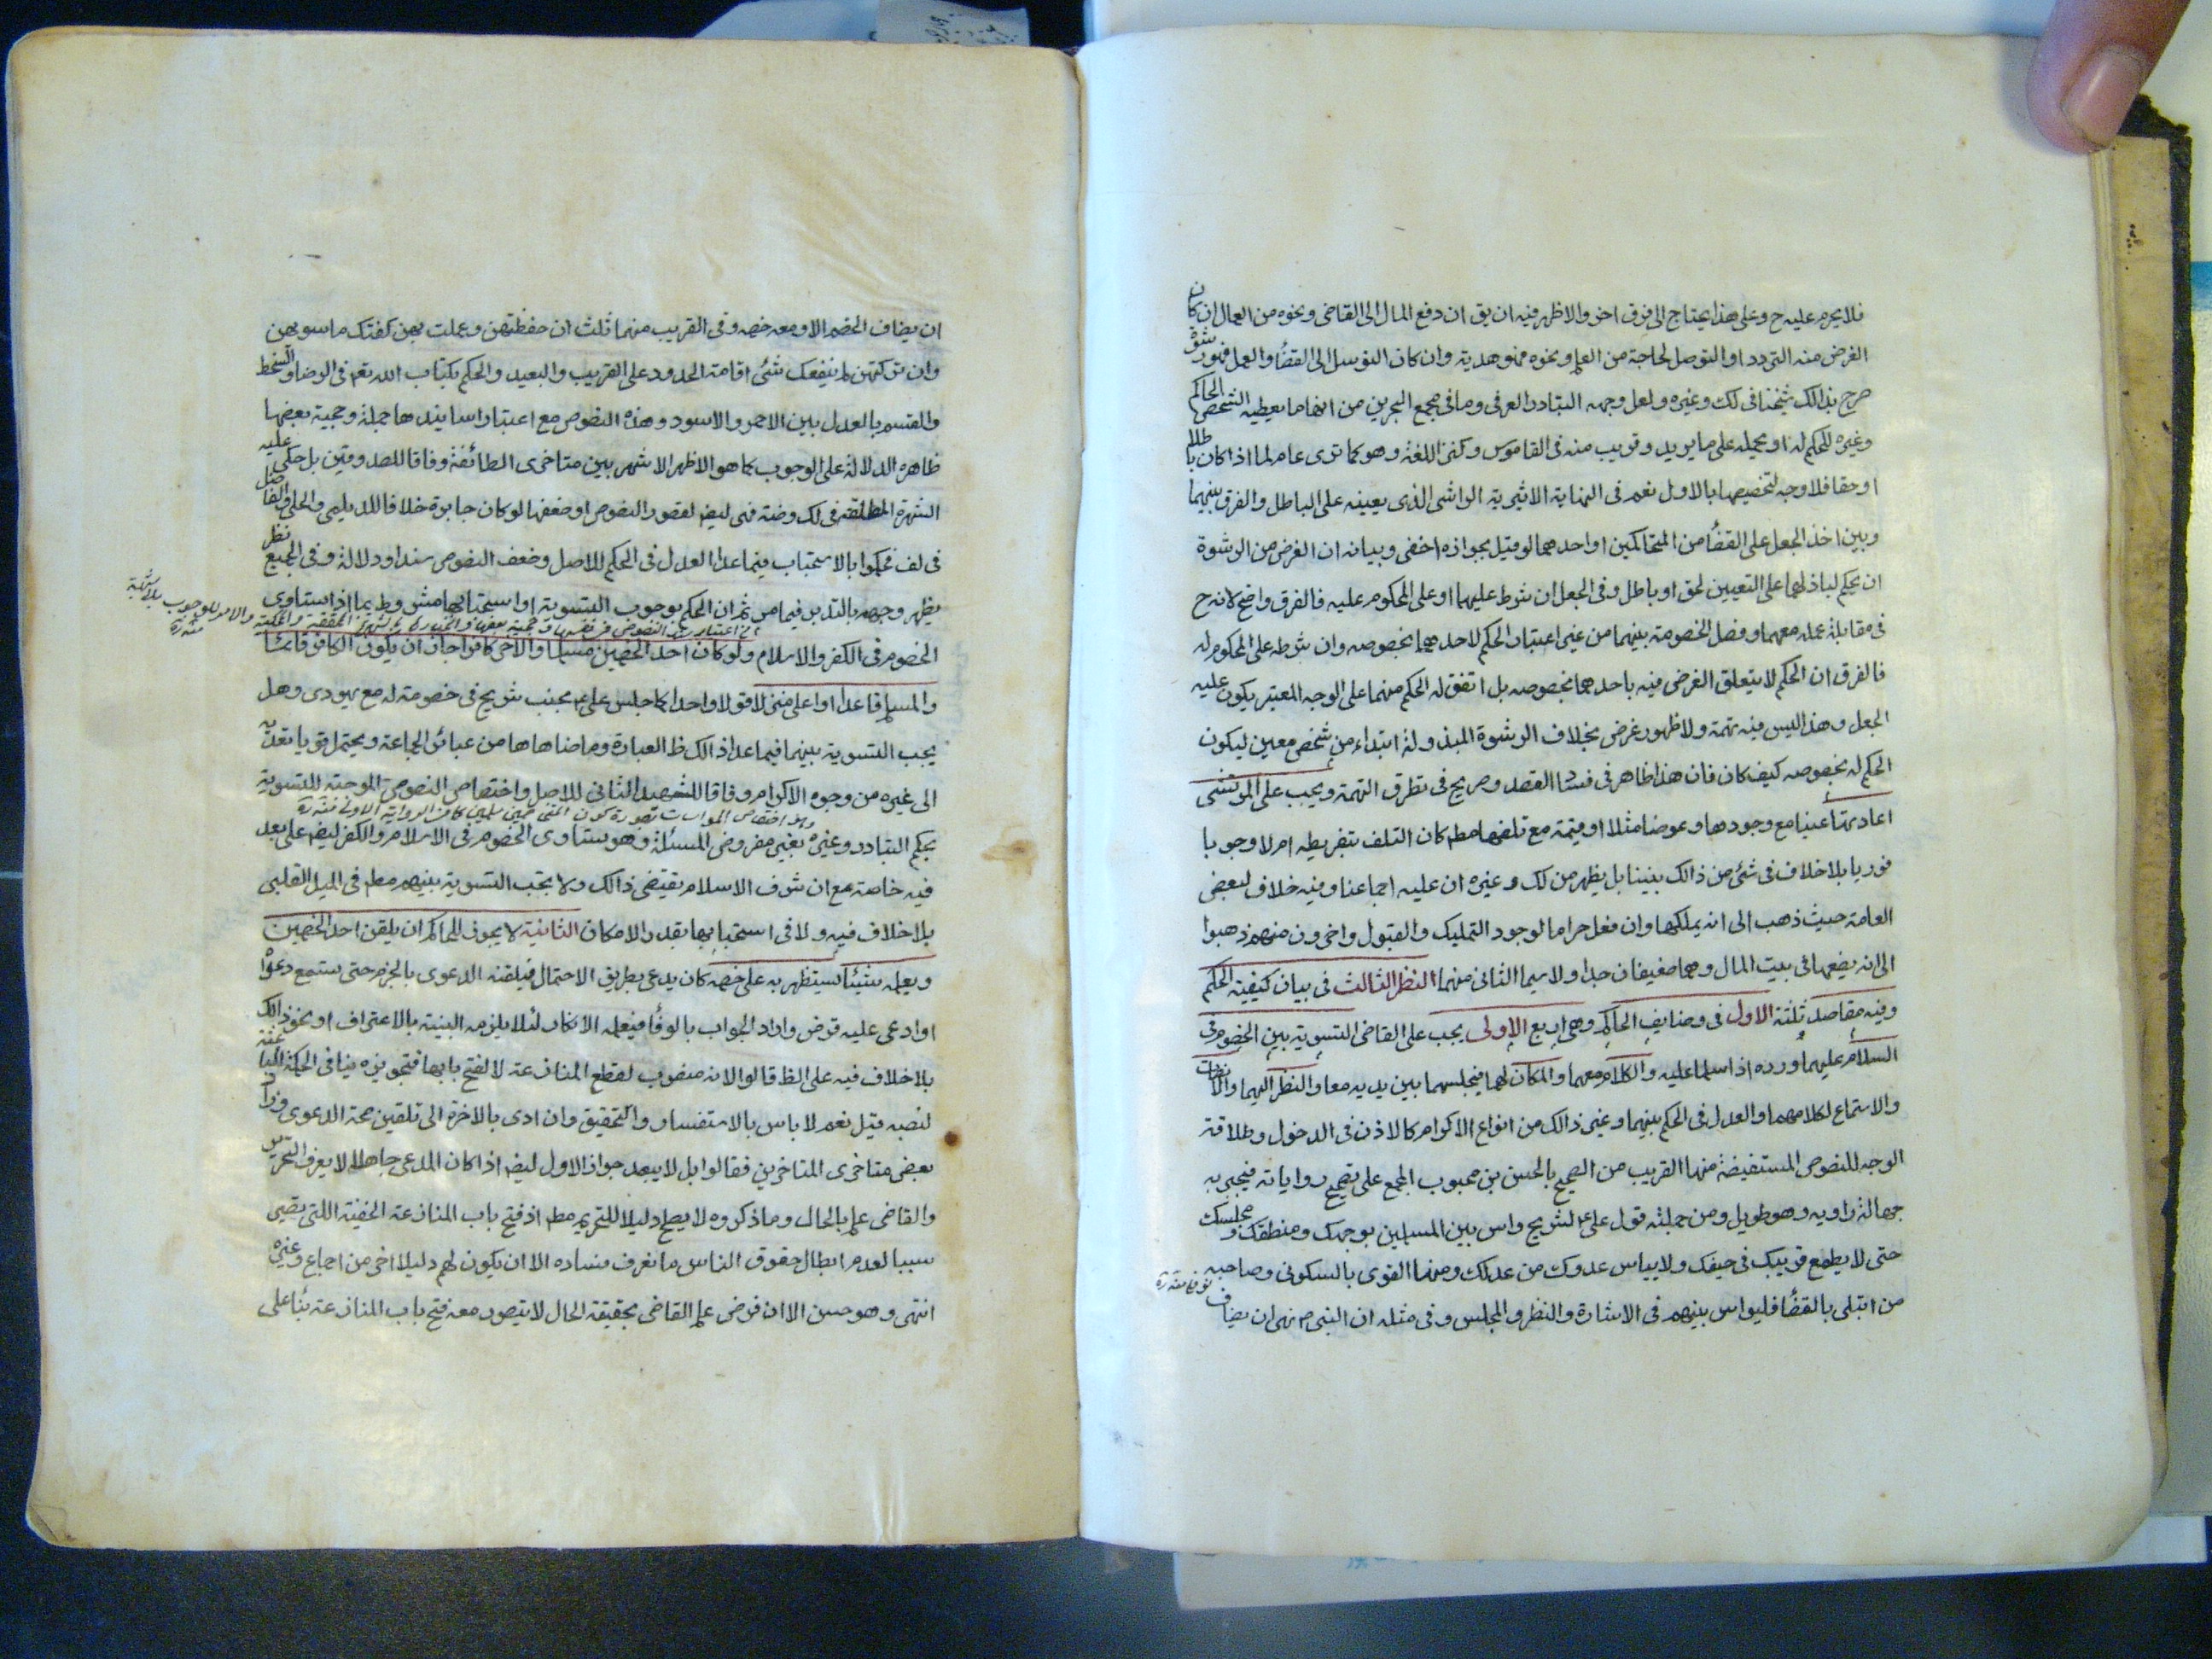 فلا يحرم عليه ح وعلى هذا يحتاج الى فرق اخر والاظهر فيه ان يق ان دفع المال الى القاضى ونحوه من العمال ان كان
الغرض منه التودد او التوصل لحاجة من العلم ونحوه فهو هدية وان كان التوسل الى القضاء والعمل فهو رشوة
صرح بذالك شيخنا فى لك وغيره ولعل وجهه التبادر العرفى وما فى مجمع البحرين من انها ما يعطيه الشخص الحاكم
وغيره ليحكم له او يحمله على ما يريد وقريب منه فى القاموس وكنز اللغة وهو كما ترى عام لما اذا كان باطلا
او حقا فلا وجه لتخصيصها بالاول نعم فى النهاية الاثيرية الراشى الذى يعينه على الباطل والفرق بينهما
وبين اخذ الجعل على القضاء من المتحاكمين او احدهما لو قيل بجوازه اخفى وبيانه ان الغرض من الرشوة
ان يحكم لباذلها على التعيين لحق او باطل وفى الجعل ان شرط عليهما او على المحكوم عليه فالفرق واضح لانه ح
فى مقابلة عمله معهما وفصل الخصومة بينهما من غير اعتبار الحكم لاحدهما بخصوصه وان شرطه على المحكوم له
فالفرق ان الحكم لا يتعلق الغرض فيه باحدهما بخصوصه بل اتفق له الحكم منهما على الوجه المعتبر يكون عليه
الجعل وهذا ليس فيه تهمة ولا ظهور غرض بخلاف الرشوة المبذولة ابتداء من شخص معين ليكون
الحكم له بخصوصه كيف كان فان هذا ظاهر فى فساد القصد وصريح فى تطرق التهمة ويجب على المرتشى
اعادتها عينا مع وجودها وعوضا مثلا او قيمة مع تلفها مطم كان التلف بتفريطه ام لا وجوبا
فوريا بلا خلاف فى شئ من ذالك بيننا بل يظهر من لك وغيره ان عليه اجماعنا وفيه خلاف لبعض
العامة حيث ذهب الى انه يملكها وان فعل حراما لوجود التمليك والقبول واخرون منهم ذهبوا
الى انه يضعها فى بيت المال وهما ضعيفان جدا ولا سيما الثانى منهما النظر الثالث فى بيان كيفية الحكم
وفيه مقاصد ثلثة الاول فى وضايف الحاكم وهى اربع الاولى يجب على القاضى التسوية بين الخصوم فى
السلام عليهما ورده اذا سلما عليه والكلام معهما والمكان لهما فيجلسهما بين يديه معا والنظر اليهما والانصات
والاستماع لكلامهما والعدل فى الحكم بينهما وغير ذالك من انواع الاكرام كالاذن فى الدخول وطلاقة
الوجه للنصوص المستفيضة منها القريب من الصحيح بالحسن بن محبوب المجمع على تصحيح رواياته فينجبر به
جهالة راويه وهو طويل ومن جملته قول على ع لشريح واس بين المسلمين بوجهك ومنطقك ومجلسك
حتى لا يطمع قريبك فى حيفك ولا ييأس عدوك من عدلك ومنها القوى بالسكونى وصاحبه
من ابتلى بالقضاء فليواس بينهم فى الاشارة والنظر والمجلس وفى مثله ان النبى ص نهى ان يضاف
ان يضاف الخصم الا ومعه خصمه وفى القريب منهما ثلث ان حفظتهن وعملت بهن كفتك ما سويهن
وان تركتهن لم ينفعك شئ اقامة الحدود على القريب والبعيد والحكم بكتاب الله تعم فى الرضا والسخط
والقسم بالعدل بين الاحمر والاسود وهذه النصوص مع اعتبار اسانيدها جملة وحجية بعضها
ظاهره الدلالة على الوجوب كما هو الاظهر الاشهر بين متاخرى الطائفة وفاقا للصدوقين بل حكى عليه
الشهرة المطلقة فى لك وضة فهى ليضم لقصور النصوص او ضعفها لو كان جابرة خلافا للديلمى والحلى والفاضل
فى لف فحكموا بالاستحباب فيما عدا العدل فى الحكم للاصل وضعف النصوص سندا ودلالة وفى الجميع نظر
يظهر وجهه بالتدبر فيما مر ثم ان الحكم بوجوب التسوية او استحبابها مشروط بما اذا تساوى
الخصوم فى الكفر والاسلام ولو كان احد الخصمين مسلما والاخر كافرا جاز ان يكون الكافر قائما
والمسلم قاعدا او اعلى منزلا قولا واحدا كما جلس على ع بجنب شريح فى خصومة له مع يهودى وهل
يجب التسوية بينهما فيما عدا ذالك ظ العبارة وما ضاهاها من عبائر الجماعة ويحتمل قويا تعديه
الى غيره من وجوه الاكرام وفاقا للشهيد الثانى للاصل واختصاص النصوص الموجبة للتسوية
بحكم التبادر وغيره بغير مفروض المسئلة وهو تساوى الخصوم فى الاسلام والكفر ليضم على بعد
فيه خاصة مع ان شرف الاسلام يقتضى ذالك ولا تجب التسوية بينهم مطم فى الميل القلبى
بلا خلاف فيه ولا فى استحبابها بقدر الامكان الثانية لا يجوز للحاكم ان يلقن احد الخصمين
ويعلمه شيئا يستظهر به على خصمه كان يدعى بطريق الاحتمال فيلقنه الدعوى بالجزم حتى تسمع دعواه
او ادعى عليه قرض واراد الجواب بالوفاء فيعلمه الانكار لئلا يلزمه البينة بالاعتراف او نحو ذالك
بلا خلاف فيه على الظ قالوا لانه منصوب لقطع المنازعة لا لفتح بابها فتجويزه ينافى الحكمة الباعثة
لنصبه قيل نعم لا باس بالاستفسار والتحقيق وان ادى بالاخرة الى تلقين صحة الدعوى وزاد
بعض متاخرى المتاخرين فقالوا بل لا يبعد جواز الاول ليضم اذا كان المدعى جاهلا لا يعرف التحرير
والقاضى علم بالحال وما ذكروه لا يصلح دليلا للتحريم مطم اذ فتح باب المنازعة الخفية اللتى تصير
سببا لعدم ابطال حقوق الناس ما نعرف فساده الا ان يكون لهم دليلا اخر من اجماع وغيره
انتهى وهو حسن الا ان فرض علم القاضى بحقيقة الحال لا يتصور معه فتح باب المنازعة بناء على